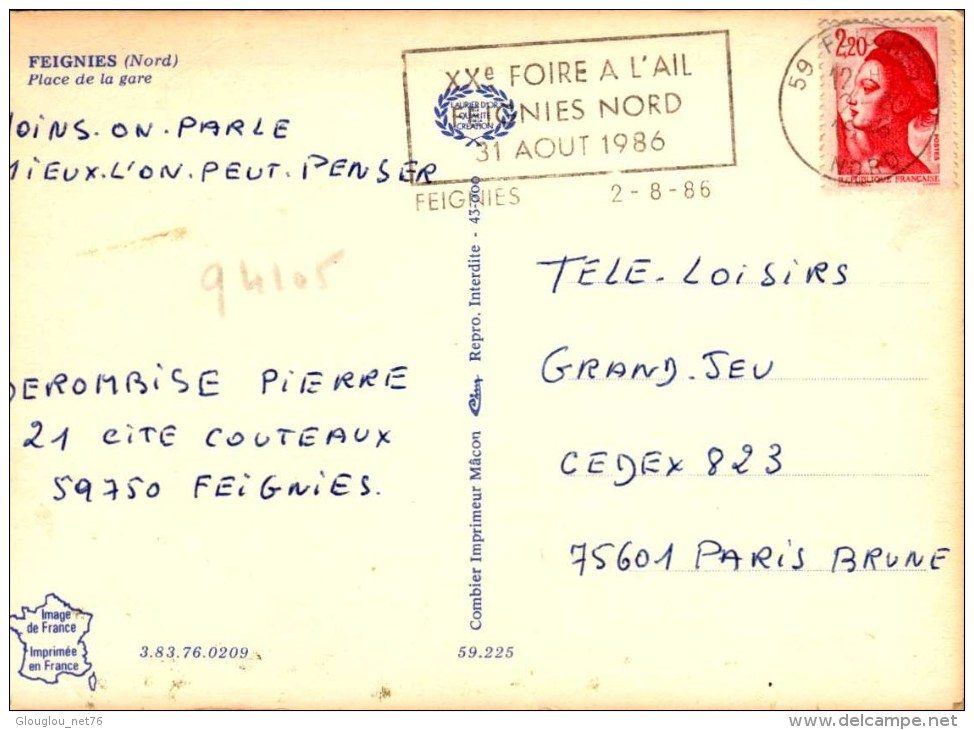 FEIGNIES (Nord)
Place de la gare
OINS.ON.PARLE
MIEUX.L'ON.PEUT.PENSER
94105
DEROMBISE PIERRE
21 CITE COUTEAUX
59750 FEIGNIES.
Image
de France
Imprimée
en France
3.83.76.0209
59.225
Combier Imprimeur Mâcon Repro. Interdite - 43-000
LAURIER D'OR
QUALITÉ
CREATION
XXe FOIRE A L'AIL
FEIGNIES NORD
31 AOUT 1986
FEIGNIES 2-8-86
59
NORD
2,20
POSTES
REPUBLIQUE FRANÇAISE
TELE-LOISIRS
GRAND.JEU
CEDEX 823
75601 PARIS BRUNE
Glouglou_net76
delcampe.net